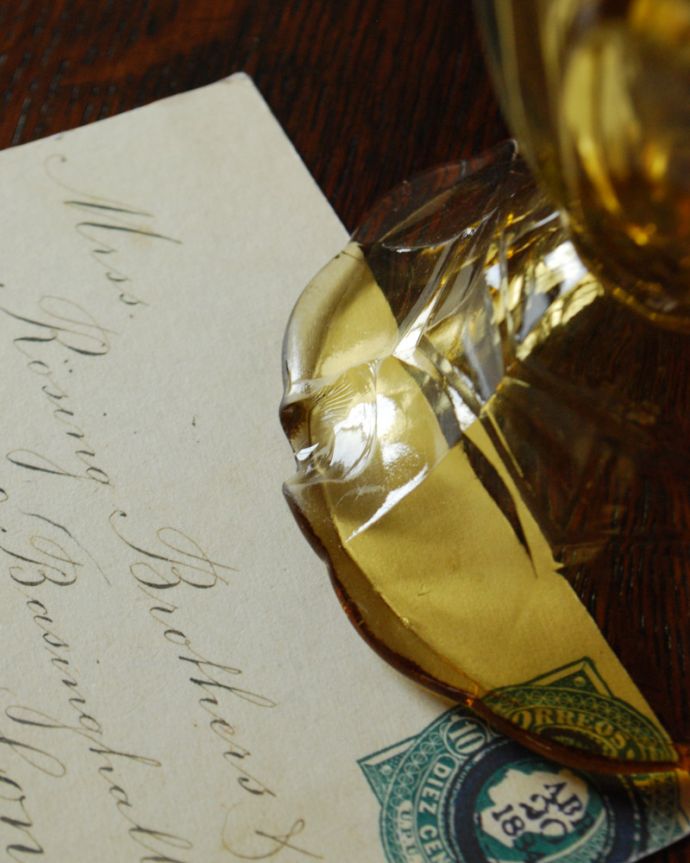 Miss.
Rösing Brothers &
Basinghall
Lon
CORREOS
10
DIEZ CEN
ABC
2
18